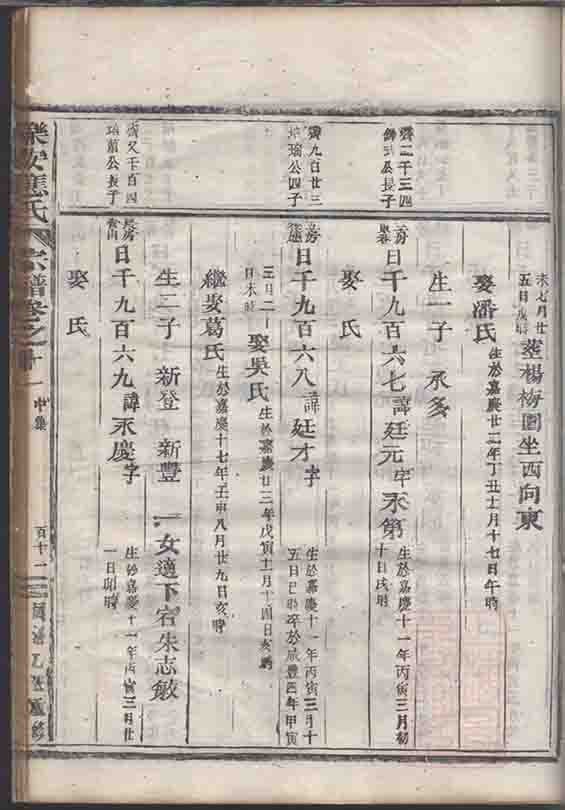 未七月廿
五日戌時
塟楊梅園坐西向東
娶潘氏
生於嘉慶廿二年丁丑十月十七日午時
生一子 永多
齊二千三四
公長子
日千九百六七諱廷元字永第
生於嘉慶十一年丙寅三月初
十日戌時
娶氏
齊九百廿三
培瑞公四子
日千九百六八諱廷才字
生於嘉慶十一年丙寅三月十
五日巳時卒於咸豐四年甲寅
三月二十
日未時
娶吳氏
生於嘉慶廿三年戊寅十一月十四日亥時
繼娶葛氏
生於嘉慶十七年壬申八月廿九日亥時
生二子 新登 新豐 一女適下宕朱志敏
齊又千百四
培前公長子
日千九百六九諱永慶字
生於嘉慶十一年丙寅三月廿
一日卯時
娶氏
樂安蔣氏宗譜卷之十一
中集
百十二